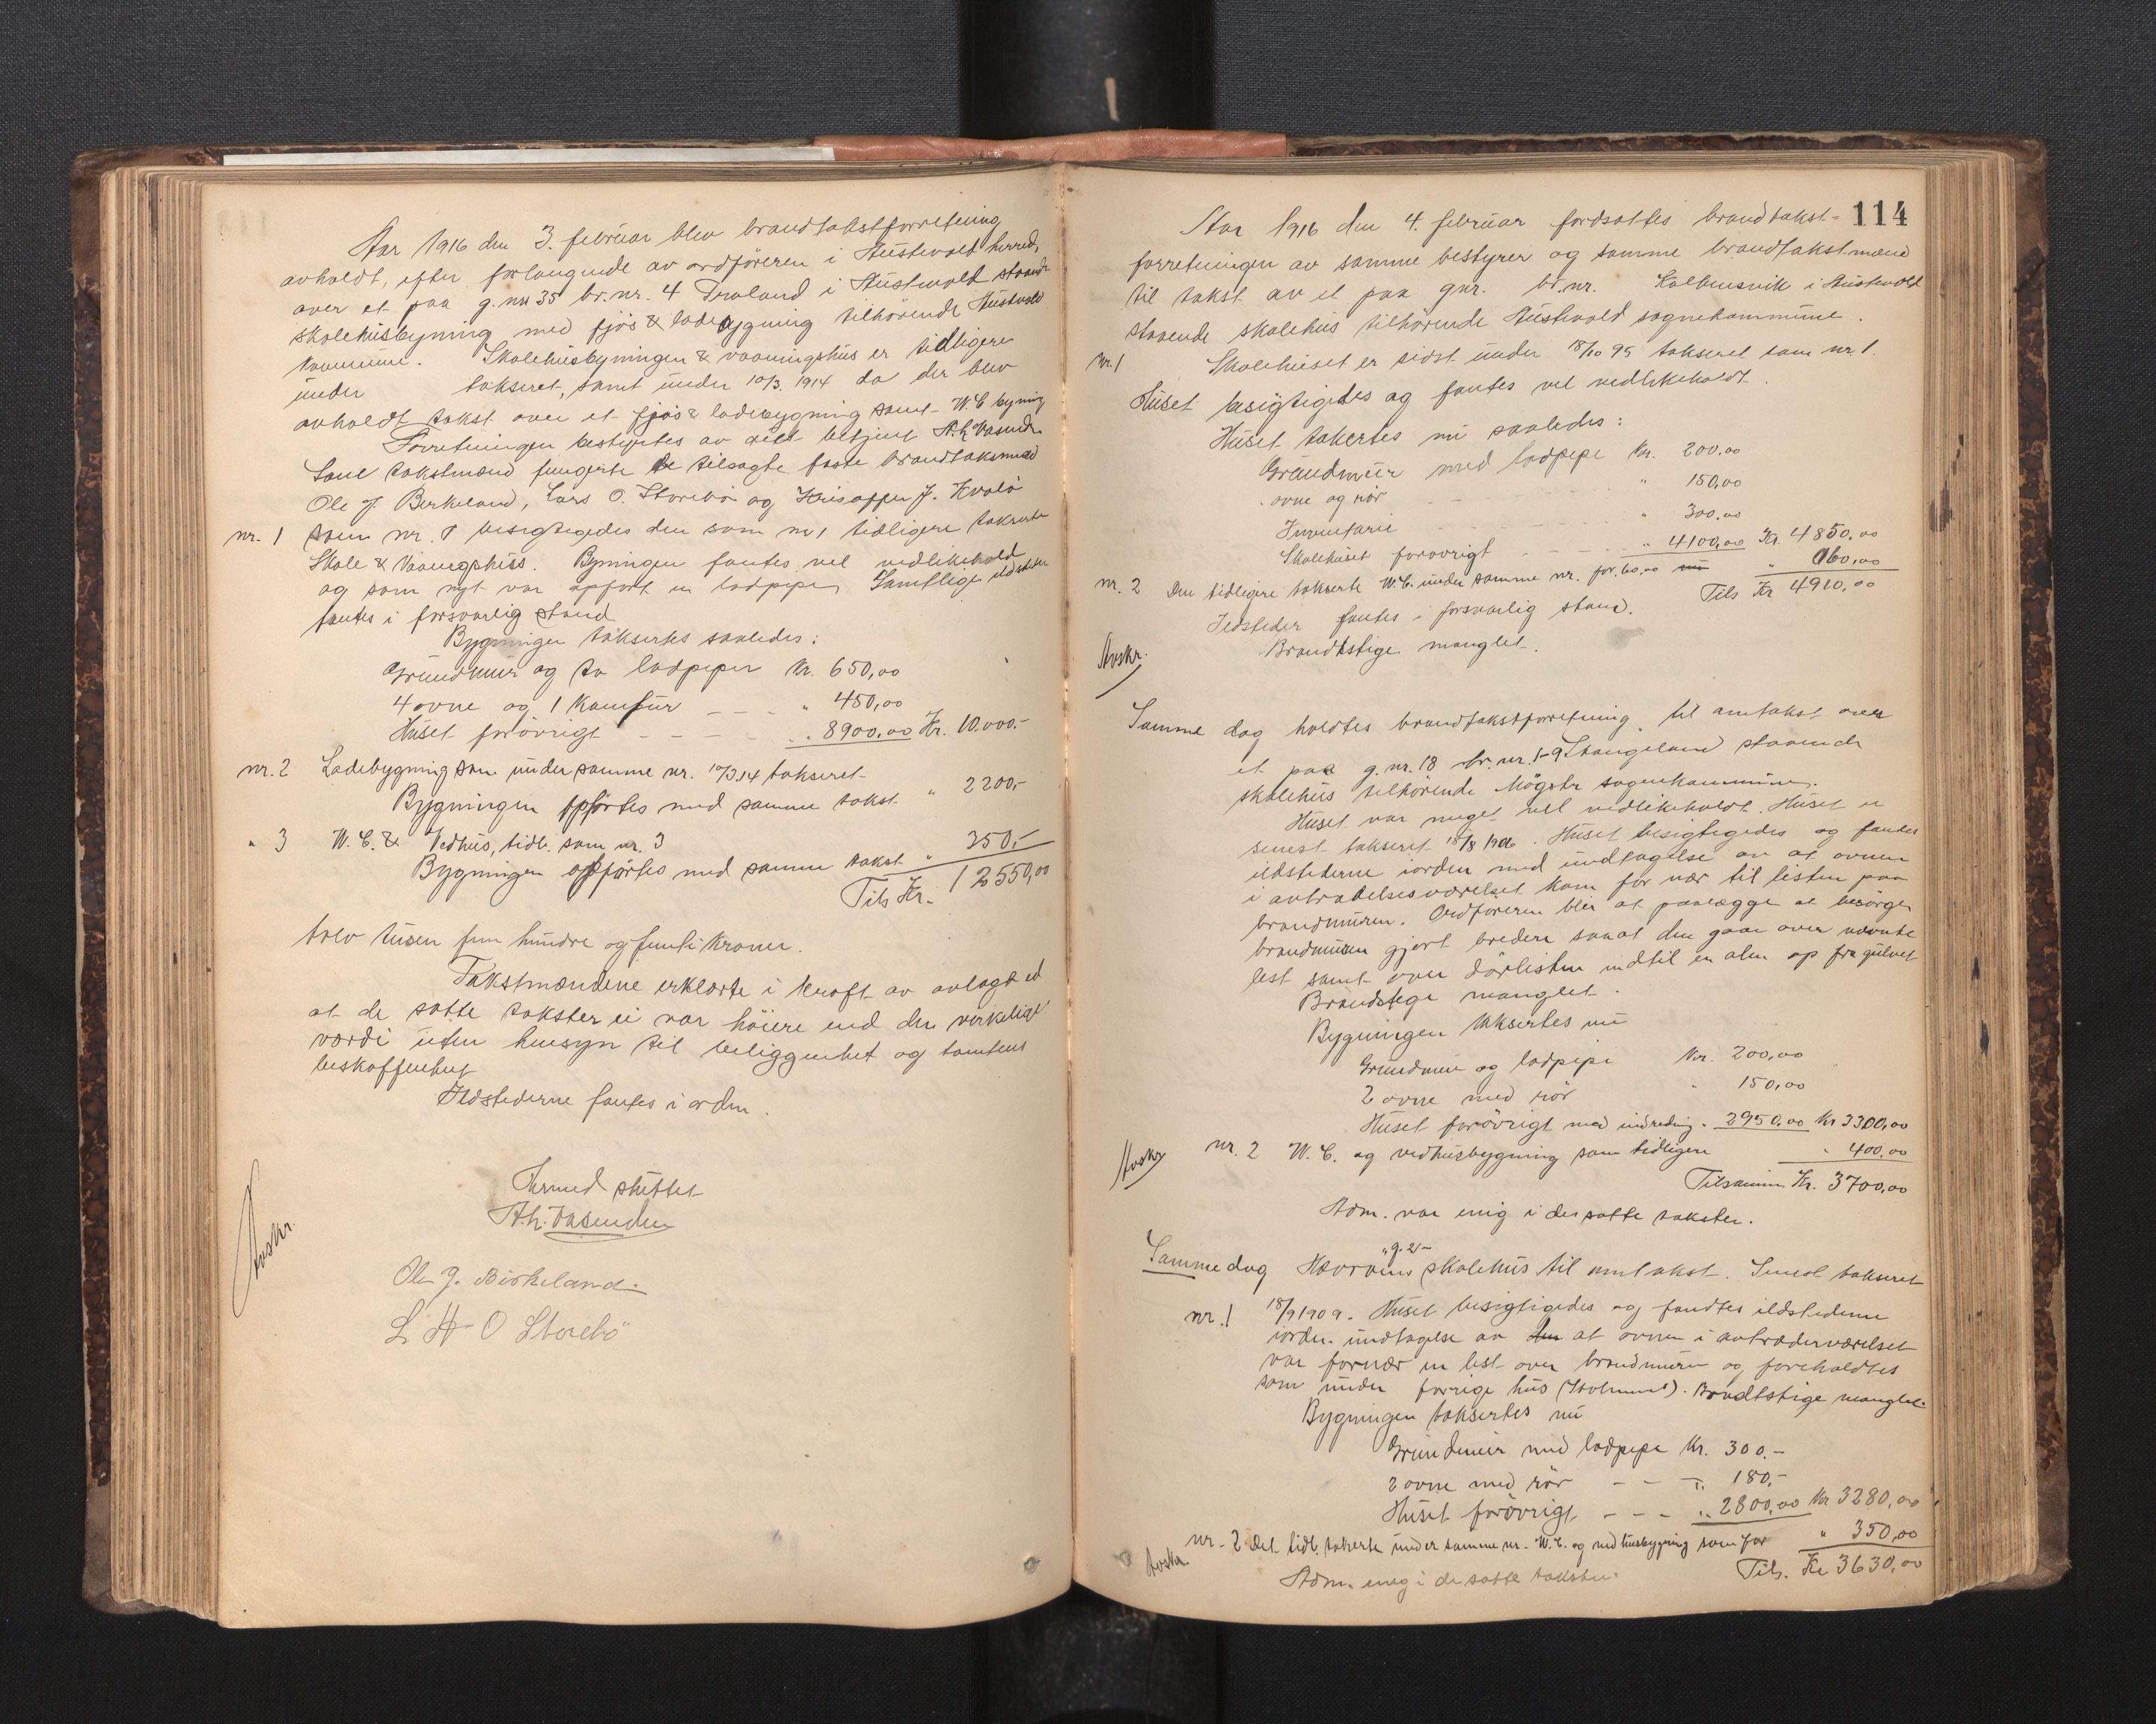 Aar 1916 den 3. februar blev brandtakstforretning
avholdt, efter forlangende av ordföreren i Austevold herred,
over et paa g.nr 35 br.nr. 4 Drøland i Austevold staaende
skolehusbyning med fjös & ladebygning tilhörende Austevold
kommune. Skolehusbyningen & vaaningshus er tidligere
under takseret, samt under 10/3 1914 da der blev
avholdt takst over et fjös & ladebygning samt W.C byning
Forretningen bestyrtes av betjent A. h. Vasenden
Som takstmænd fungerte de tilsagte faste brandtaksmænd
Ole J. Berkeland, Lars O. Storebö og Kristoffer J. Kvalö
nr. 1 Som nr. 1 besigtigedes den som nr 1 tidligere takserte
Skole & Vaaningshus. Byningen fantes vel vedlikehold
og som nyt var opfört en ladpipe. Samtlige ildsteder
fantes i forsvarlig stand
Bygningen taksertes saaledes:
Grundmur og to ladpiper Kr. 650,00
4 ovne og 1 Kamfur - - - " 450,00
Huset forövrigt - - - - " 8900,00 Kr. 10.000.-
nr. 2 Ladebygning som under samme nr. 10/3.14 takseret
Bygningen opförtes med samme takst " 2200,-
" 3 W.C. & Vedhus, tidl. som nr. 3
Bygningen opförtes med samme takst " 350,-
Tils Kr. 12550,00
tolv tusen fem hundre og femti Kroner.
Takstmændene erklærte i kraft av avlagt ed
at de satte takster ei var höiere end den virkelige
værdi uten hensyn til beliggenhet og tomtens
beskaffenhet
Ildstederne fantes i orden.
Hermed sluttet
A. h. Vasenden
Ole J. Birkeland.
L H O Storebö
Avskr.
114
Aar 1916 den 4. februar fordsattes brandtakst-
forretningen av samme bestyrer og samme brandtakstmænd
til takst av et paa gnr. br.nr. Kolbensvik i Austevold
staaende skolehus tilhörende Austevold sognekommune.
Nr. 1 Skolehuset er sidst under 18/10 95 takseret som nr. 1.
Huset besigtigedes og fantes vel vedlikeholdt.
Huset takertes nu saaledes:
Grundmur med ladpipe Kr. 200,00
ovne og rör " 150,00
Inventarie " 300,00
Skolehuset forövrigt - - - - " 4100,00 Kr. 4850,00
nr. 2 Den tidligere takserte W.C. under samme nr. for 60,00 " 060,00
Tils Kr 4910,00
Ildsteder fantes i forsvarlig stand.
Avskr.
Brandstige manglet.
Samme dag holdtes brandtakstforretning til omtakst over
et paa g.nr. 18 br.nr. 1-9 Stangeland staaende
skolehus tilhörende Mögster sognekommune.
Huset var meget vel vedlikeholdt. Huset er
senest takseret 18/8 1906. Huset besigtigedes og fantes
ildstederne iorden med undtagelse av at ovnen
i avtrædelsesværelset kom for nær til listen paa
brandmuren. Ordföreren blir at paalægge at besörge
brandmuren gjort bredere saaat den gaar over nævnte
list samt over dörlisten indtil en alen op fra gulvet
Brandstige manglet.
Bygningen taksertes nu
Grundmur og ladpipe Kr. 200,00
2 ovne med rör " 150,00
Huset forövrigt med indredning " 2950,00 Kr 3300,00
nr. 2 W.C. og vedhusbygning som tidligere " 400,00
Avskr
Tilsammen Kr. 3700,00
Adm. var enig i de satte takster.
Samme dag Hevröens skolehus til omtakst. Senest takseret
nr. 1 18/9 1909. Huset besigtigedes og fandtes ildstederne
iorden undtagelse av at ovnen i avtræderværelset
var fornær en list over brandmuren og foreholdtes
som under forrige hus. Brandtstige manglet.
Bygningen taksertes nu
Grundmur med ladpipe Kr. 300.-
2 ovne med rör - - " 180,-
Huset forövrigt - - - " 2800,00 Kr 3280,00
nr. 2 Det tidl. takserte under samme nr. W.C. og vedhusbygning som för " 350,00
Avskr
Tils. Kr 3630,00
Adm. enig i de satte takster.